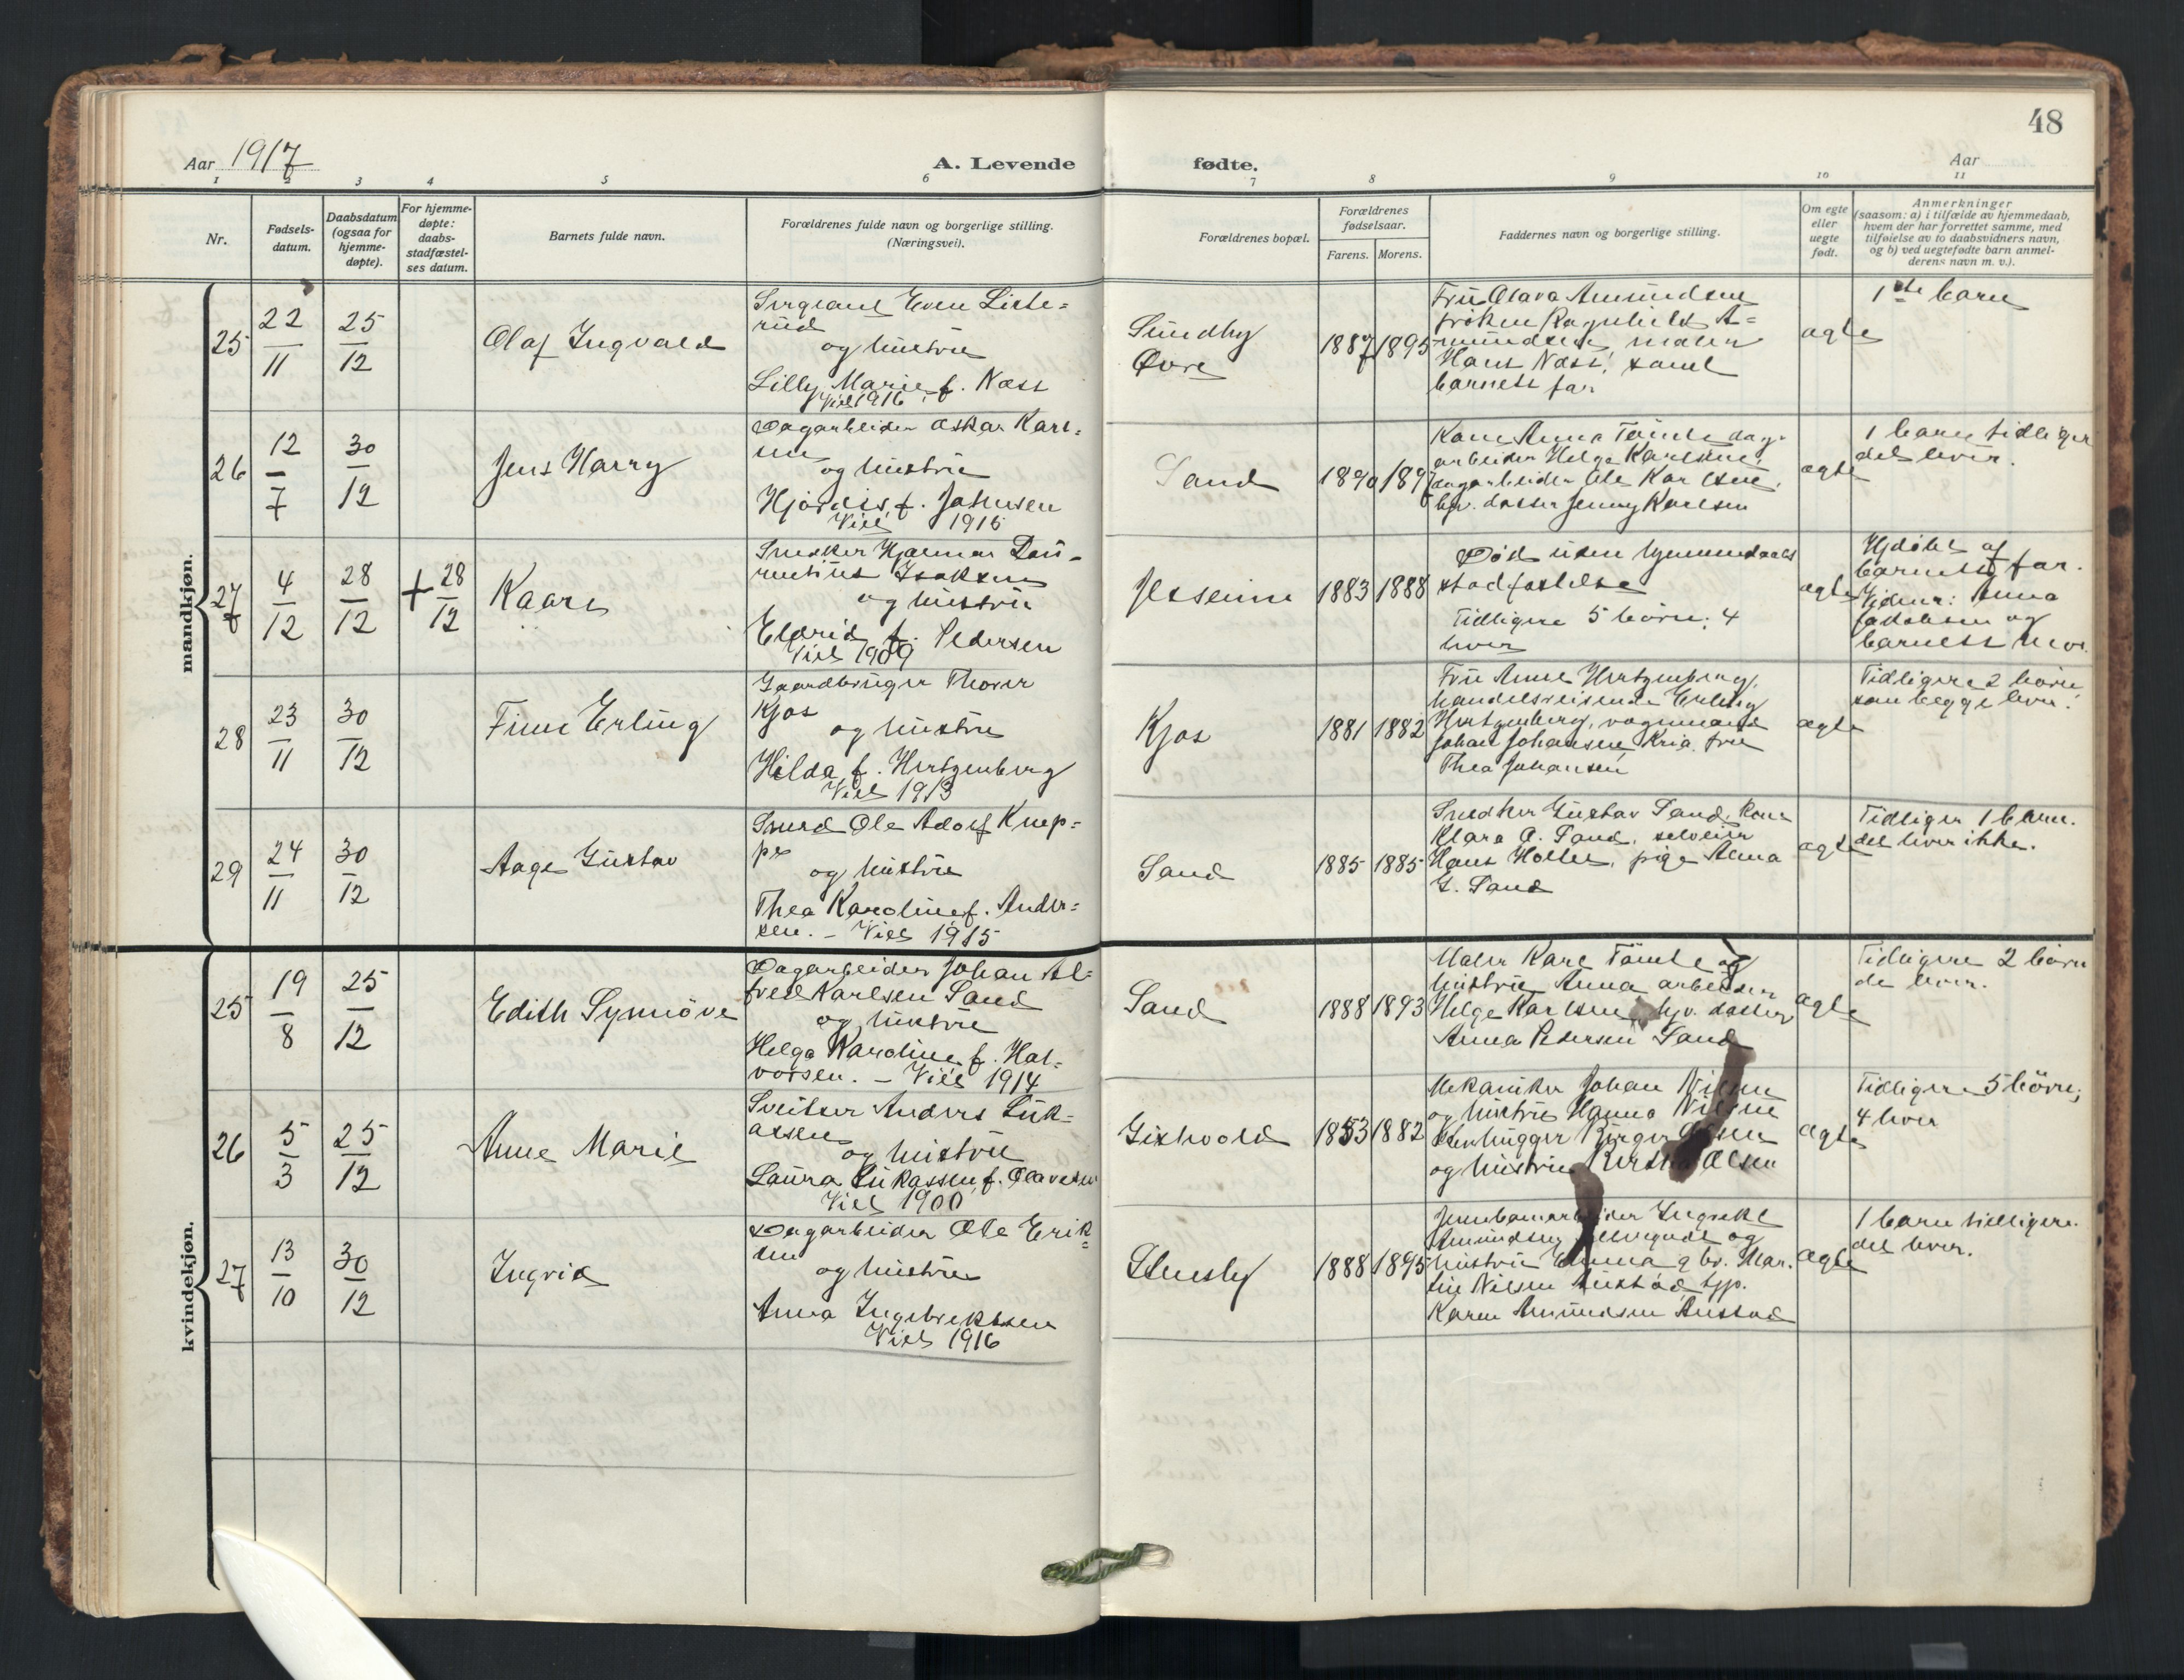 48
Aar 1917
A. Levende
fødte.
Aar
1 2 3 4 5 6 7 8 9 10 11
Nr.
Fødsels-
datum.
Daabsdatum
(ogsaa for
hjemme-
døpte).
For hjemme-
døpte:
daabs-
stadfæstel-
ses datum.
Barnets fulde navn.
Forældrenes fulde navn og borgerlige stilling.
(Næringsvei).
Forældrenes bopæl.
Forældrenes
fødselsaar.
Farens. Morens.
Faddernes navn og borgerlige stilling.
Om egte
eller
uegte
født.
Anmerkninger
(saasom: a) i tilfælde av hjemmedaab,
hvem der har forrettet samme, med
tilføielse av to daabsvidners navn,
og b) ved uegtefødte barn anmel-
derens navn m. v.).
mandkjøn.
25
22/11
25/12
Olaf Ingvald
Sergeant Even Liste=
rud
og hustru
Lilly Marie f. Næss
Viet 1916
Sundby
Øvre
1887 1895
Fru Olava Amundsen
frøken Ragnhild A=
mundsen, maler
Hans Næss, samt
barnets far
ægte
1ste barn
26
12/7
30/12
Jens Harry
Dagarbeider Oskar Karl=
sen
og hustru
Hjørdis f. Johnsen
Viet 1916
Sand
1890 189
Kone Anna Tømte dag-
arbeider Helge Karlsen,
dagarbeider Ole Karlsen,
hjv. datter Jenny Karlsen
ægte
1 barn tidliger
det lever.
27
4/12
28/12
+ 28/12
Kaare
Snekker Hjalmar
Isaksen
og hustru
Eldrid f. Pedersen
Viet 1909
Jesseim
1883 1888
Død uden hjemmedaabs
stadfæstelse
Tidligere 5 børn; 4
lever
ægte
Hjdøbt af
barnets far.
Vidner: Anna
Jakobsen og
barnets mor.
28
23/11
30/12
Finn Erling
Gaardbruger Thorer
Kjos
og hustru
Hilda f. Hertzenberg
Viet 1913
Kjos
1881 1882
Fru Anne Hertzenberg,
handelsreisende Erling
Hertzenberg, vognmand
Johan Johansen, Kria. fru
Thea Johansen
ægte
Tidligere 2 børn,
som begge lever.
29
24/11
30/12
Aage Gustav
Smed Ole Adolf Knep=
pe
og hustru
Thea Karoline f. Ander=
sen. – Viet 1915
Sand
1885 1885
Snedker Gustav Sand, kone
Klara A. Sand, selveier
Hans Holter, pige Alma
G. Sand
ægte
Tidliger 1 barn.
det lever ikke.
kvindekjøn.
25
19/8
25/12
Edith Synnøve
Dagarbeider Johan Al=
fred Karlsen Sand
og hustru
Helga Karoline f. Hal=
vorsen. – Viet 1914
Sand
1888 1893
Maler Karl Tømte og
hustru Anna arbeider
Helge Karlsen, hjv. datter
Anna Pedersen Sand
ægte
Tidligere 2 børn
de lever.
26
5/3
25/12
Anne Marie
Sveitser Anders Luk=
assen
og hustru
Laura Lukassen f. Olavesen
Viet 1900
Gislvold
1853 1882
Mekaniker Johan Nilsen
og hustru Hanna Nilsen
Stenhugger Birger Olsen
og hustru Olsen
ægte
Tidligere 5 børn;
4 lever
27
13/10
30/12
Ingrid
Dagarbeider Ole Erik=
sen
og hustru
Anna Ingebrektsen
Viet 1916
Stensby
1888 1895
Jernbanearbeider Ingvald
Amundsen og
hustru Emma, gbr. Mar-
tin Nilsen
Karen Amundsen
ægte
1 barn tidligere.
det lever.